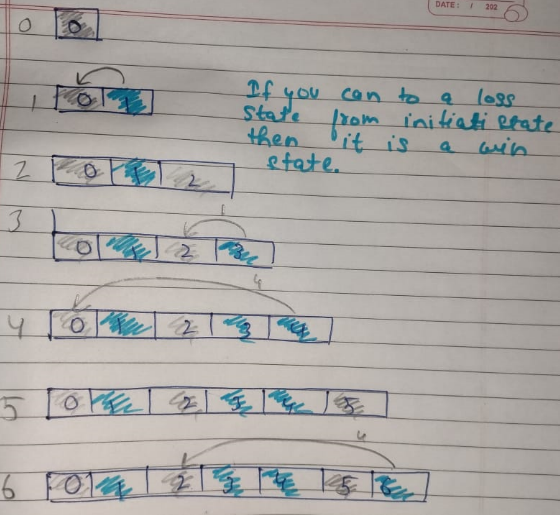 DATE: / 202
0 0
1 0 1
If you can to a loss
state from initiati state
then it is a win
state.
2 0 1 2
3
1
0 1 2 3
4
4 0 1 2 3 4
5 0 1 2 3 4 5
4
6 0 1 2 3 4 5 6